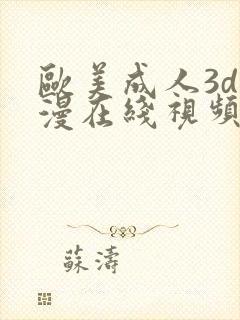 歐美成人3d
漫在綫視頻
蘇濤